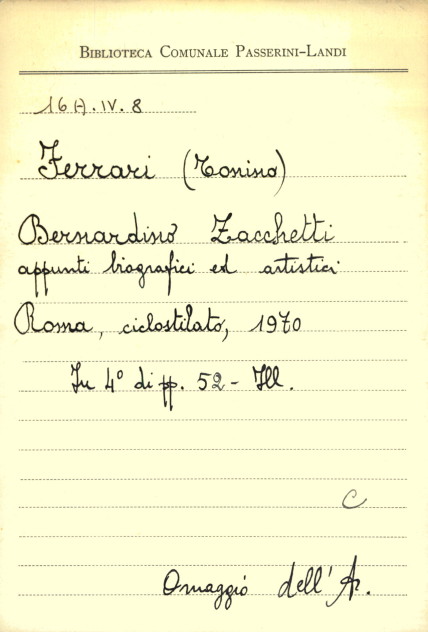 BIBLIOTECA COMUNALE PASSERINI-LANDI
16A.IV.8
Ferrari (Tonino)
Bernardino Zacchetti
appunti biografici ed artistici
Roma, ciclostilato, 1970
In 4° di pp. 52 - Ill.
C
Omaggio dell'A.